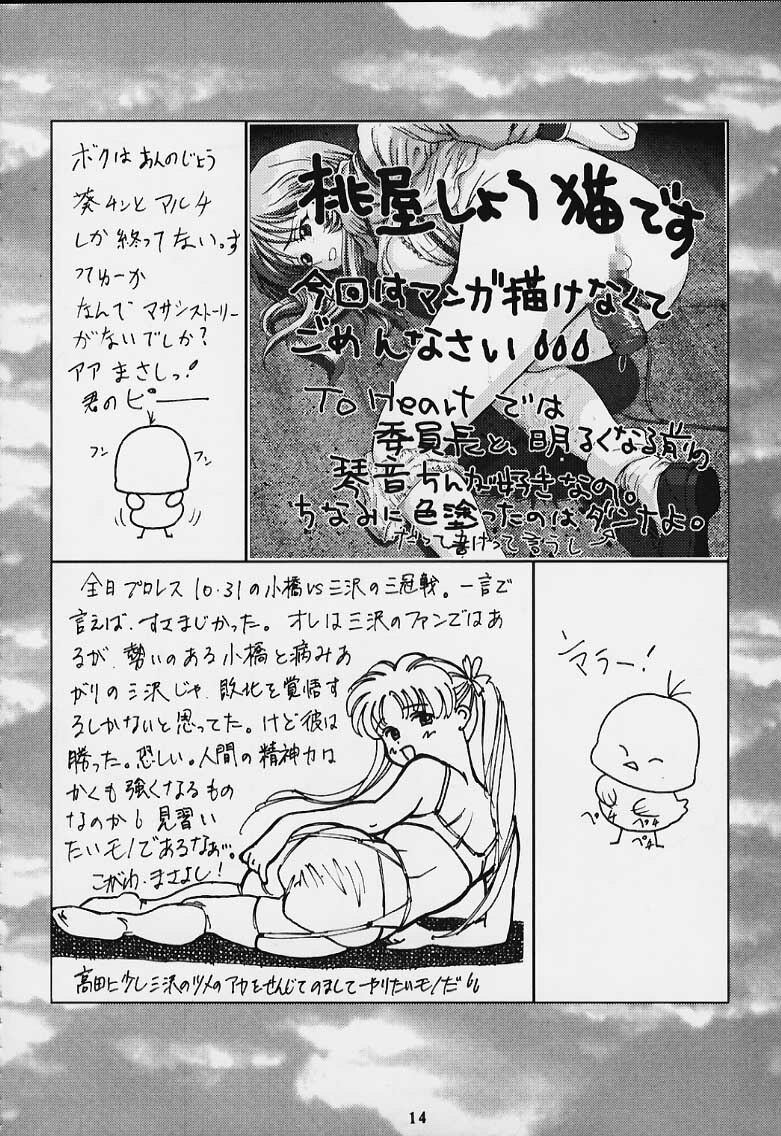 ボクは あんのじょう
葵チンと マルチ
しか 終ってない。す
ってゅーか
なんで マサシストーリー
がないでしか?
アア まさしっ!
君のピ――
フン
フン
桃屋しょう猫です
今回はマンガ描けなくて
ごめんなさい
To Heart では
委員長と、明るくなる前の
琴音ちんが好きなの。
ちなみに色塗ったのはダンナよ。
だって書けって言うし
全日プロレス 10.31の小橋VS三沢の三冠戦。一言で
言えば、すさまじかった。オレは三沢のファンではあ
るが、勢いのある小橋と病みあ
がりの三沢じゃ、敗北を覚悟す
るしかないと思ってた。けど彼は
勝った。恐しい。人間の精神力は
かくも強くなるもの
なのか 見習い
たいモノであるなぁ…。
こがわ まさよし!
高田に少し三沢のツメのアカをせんじてのましてやりたいモノだ
マラー!
ペチ
ペチ
ペチ
14